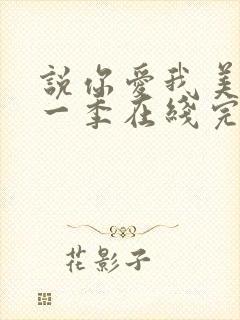 說你愛我美
一季在綫完
花影子